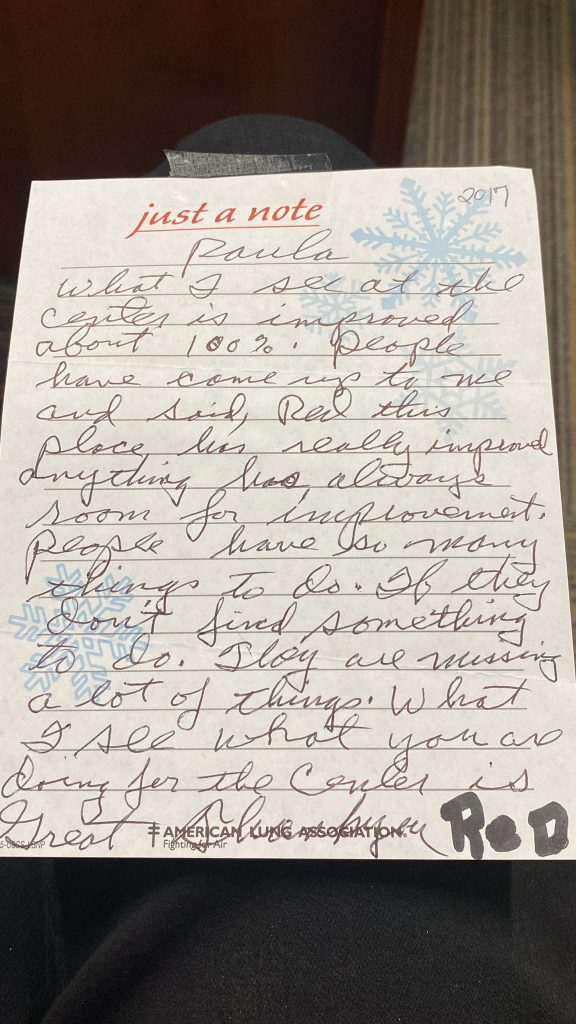 2017
just a note
Paula
What I see at the
center is improved
about 100%. People
have come up to me
and said, Red this
place has really improved
anything has always
room for improvement.
People have so many
things to do. If they
don't find something
to do. They are missing
a lot of things. What
I see what you are
doing for the Center is
Great Thank you RED
AMERICAN LUNG ASSOCIATION®
Fighting for Air